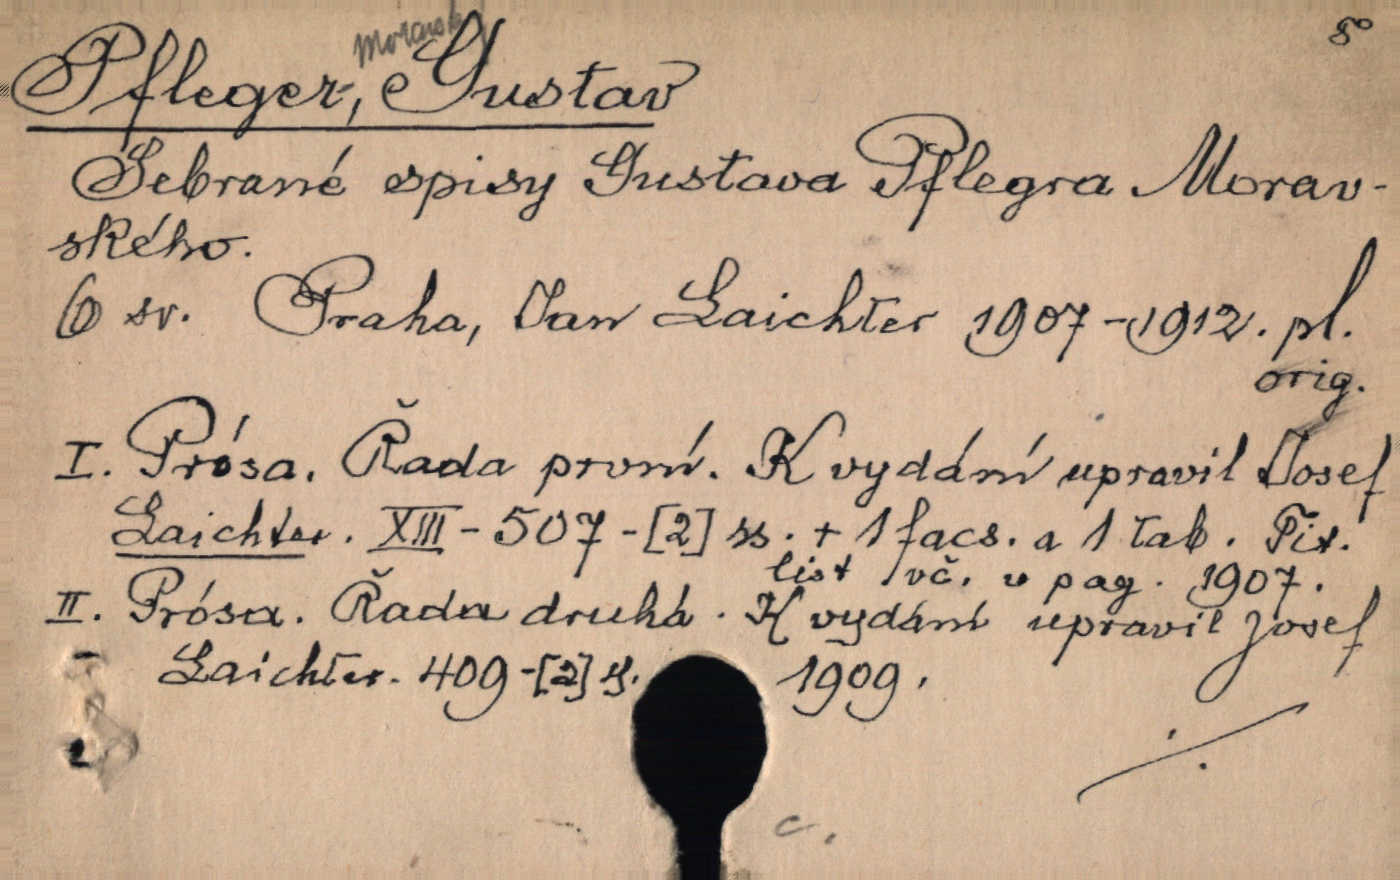 8°
Moravský
Pfleger, Gustav
Sebrané spisy Gustava Pflegra Morav-
ského.
6 sv. Praha, Jan Laichter 1907-1912. pl.
orig.
I. Prósa. Řada první. K vydání upravil Josef
Laichter. XIII-507-[2] ss. + 1 facs. a 1 tab. Tit.
list vč. v pag. 1907.
II. Prósa. Řada druhá. K vydání upravil Josef
Laichter. 409-[2] s. 1909.
./.
c.